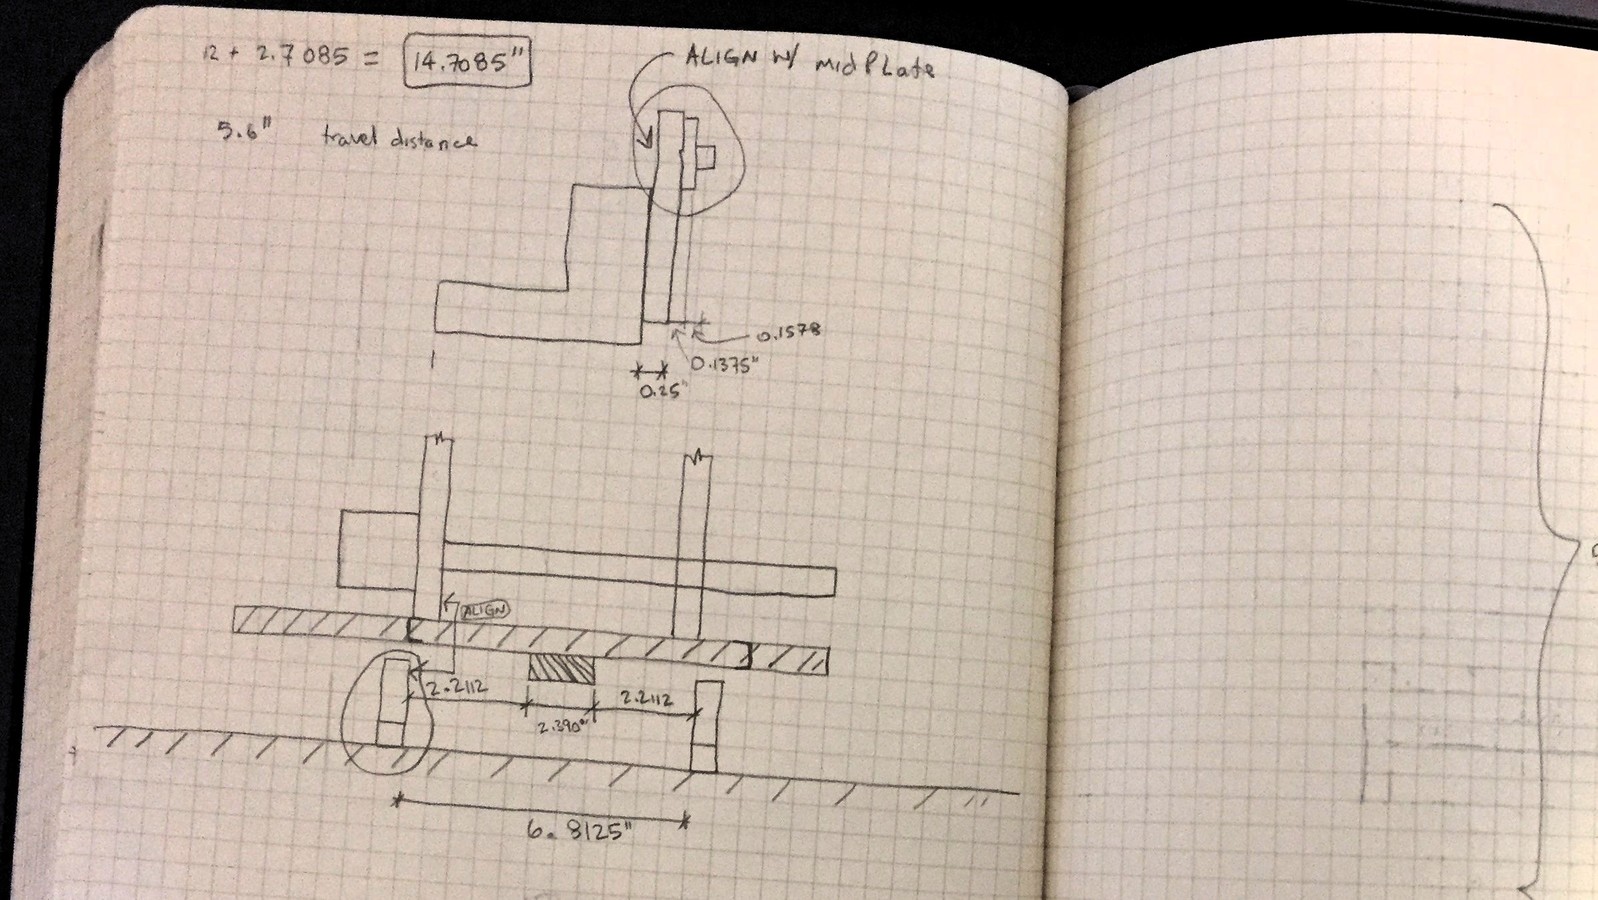 12 + 2.7085 = 14.7085"
ALIGN W/ midPLate
5.6" travel distance
0.1578
0.1375"
0.25"
ALIGN
2.2112
2.2112
2.390"
6.8125"